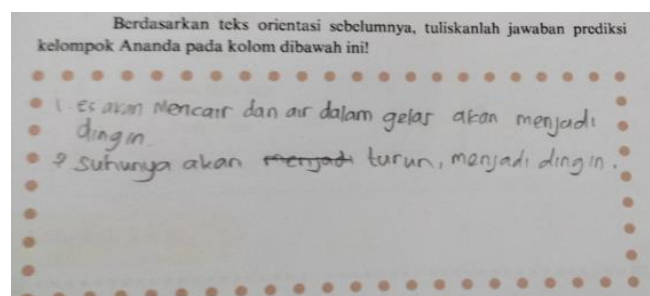 Berdasarkan teks orientasi sebelumnya, tuliskanlah jawaban prediksi
kelompok Ananda pada kolom dibawah ini!
1. es akan Mencair dan air dalam gelas akan menjadi
dingin.
2 suhunya akan menjadi turun, menjadi dingin.